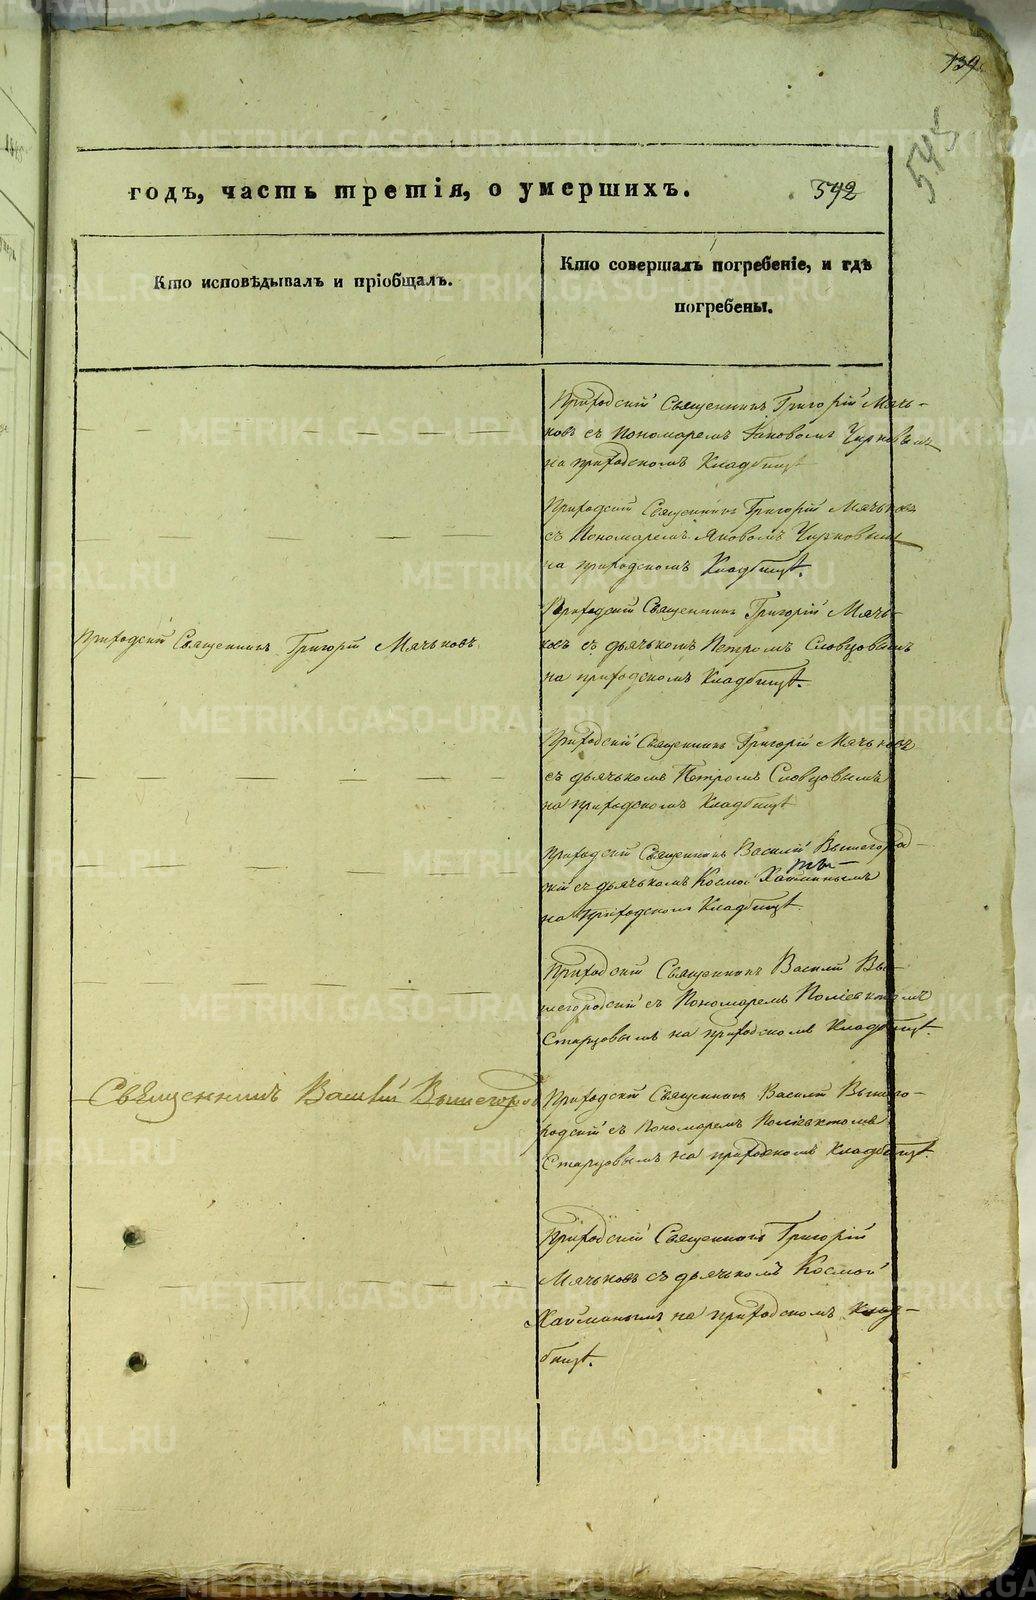 139
545
годъ, часть третія, о умершихъ. 592
Кто исповѣдывалъ и пріобщалъ.
Кто совершалъ погребеніе, и гдѣ
погребены.
Приходскій Священникъ Григорій Мячь-
ковъ съ пономаремъ Яковомъ Чирковымъ
на приходскомъ Кладбищѣ
Приходскій Священникъ Григорій Мячьковъ
съ Пономаремъ Яковомъ Чирковымъ
на приходскомъ Кладбищѣ.
Приходскій Священникъ Григорій Мячьковъ
Приходскій Священникъ Григорій Мячь-
ковъ съ дьячькомъ Петромъ Словцовымъ
на приходскомъ Кладбищѣ.
Приходскій Священникъ Григорій Мячьковъ
съ дьячькомъ Петромъ Словцовымъ
на приходскомъ Кладбищѣ
Приходскій Священникъ Василій Вышегород-
скій съ дьячькомъ Космой
на приходскомъ Кладбищѣ
Приходскій Священникъ Василій Вы-
шегородскій съ Пономаремъ Поліевктомъ
Старцовымъ на приходскомъ Кладбищѣ.
Священникъ Василій
Приходскій Священникъ Василій Вышего-
родскій съ Пономаремъ Поліевктомъ
Старцовымъ на приходскомъ Кладбищѣ.
Приходскій Священникъ Григорій
Мячьковъ съ дьячькомъ Космой
на приходскомъ Клад-
бищѣ.
METRIKI.GASO-URAL.RU